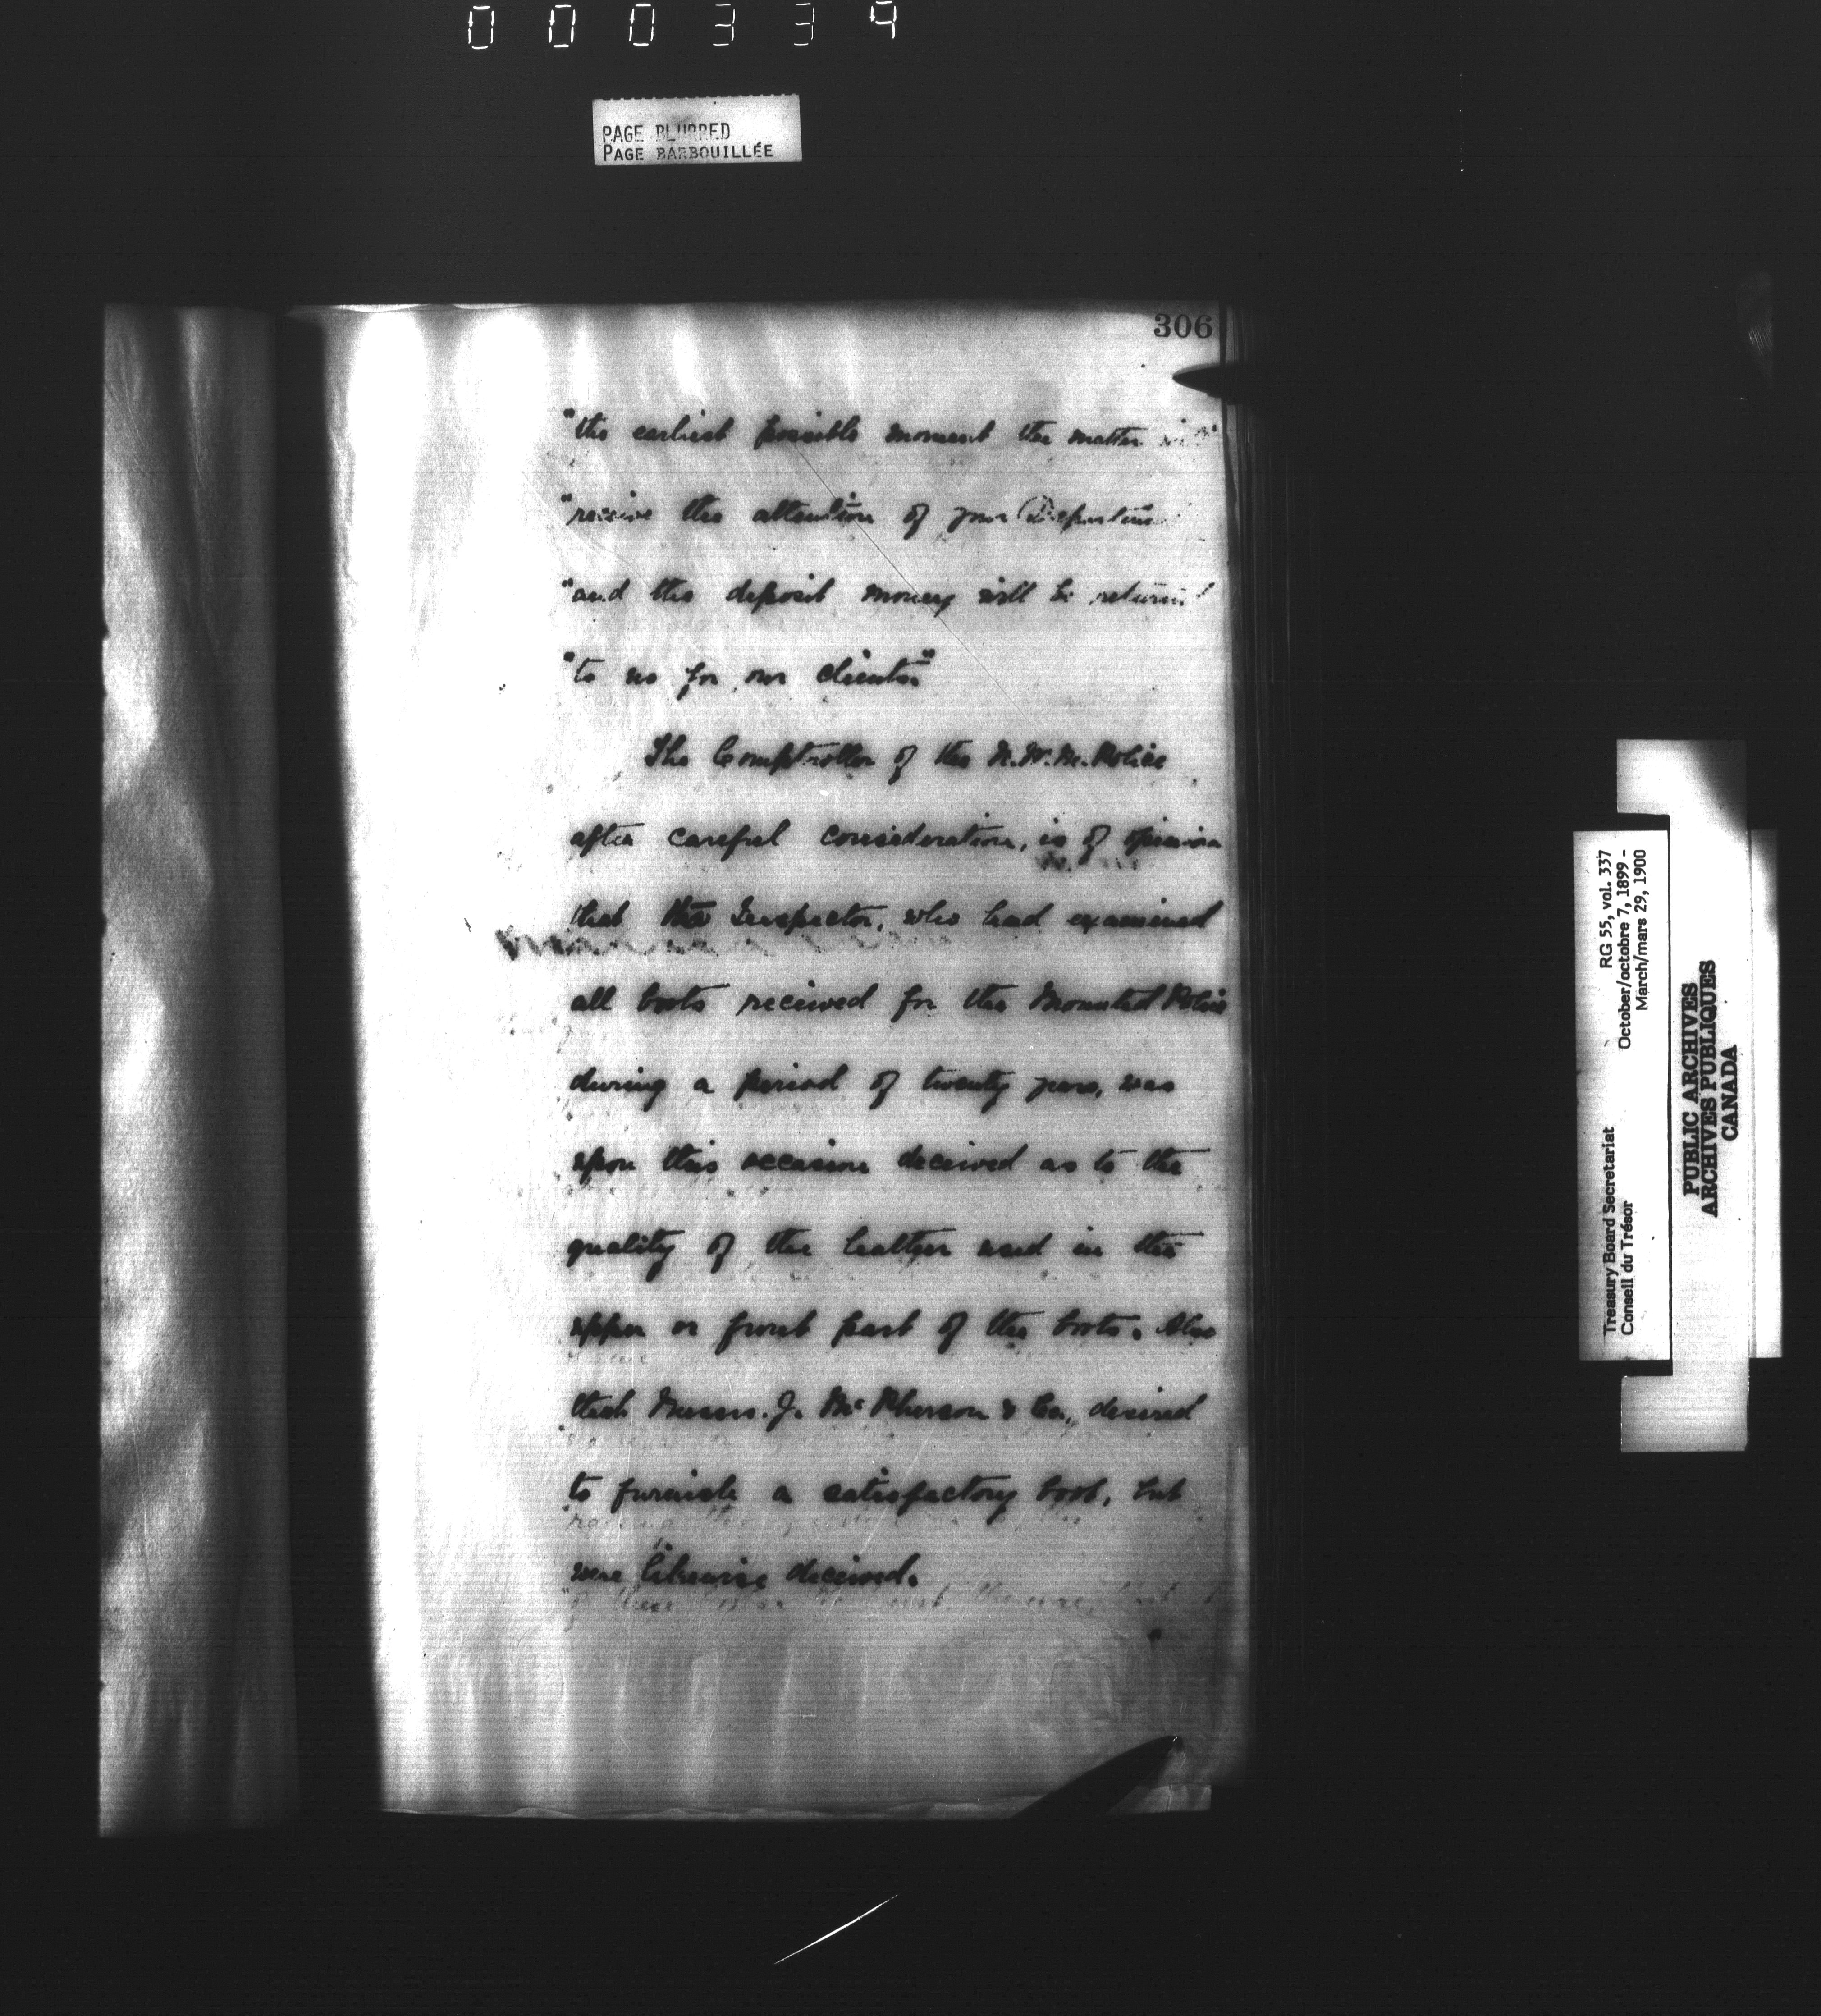 000334
PAGE BLURRED
PAGE BARBOUILLÉE
306
"the earliest possible moment the matter will
"receive the attention of your Department
"and the deposit money will be returned
"to us for our clients."
The Comptroller of the N.W.M. Police
after careful consideration, is of opinion
that the Inspector, who had examined
all boots received for the Mounted Police
during a period of twenty years, was
upon this occasion deceived as to the
quality of the leather used in the
upper or front part of the boots. Also
that Messrs. J. McPherson & Co., desired
to furnish a satisfactory boot, but
were likewise deceived.
Treasury Board Secretariat
Conseil du Trésor
RG 55, vol. 337
October/octobre 7, 1899 -
March/mars 29, 1900
PUBLIC ARCHIVES
ARCHIVES PUBLIQUES
CANADA